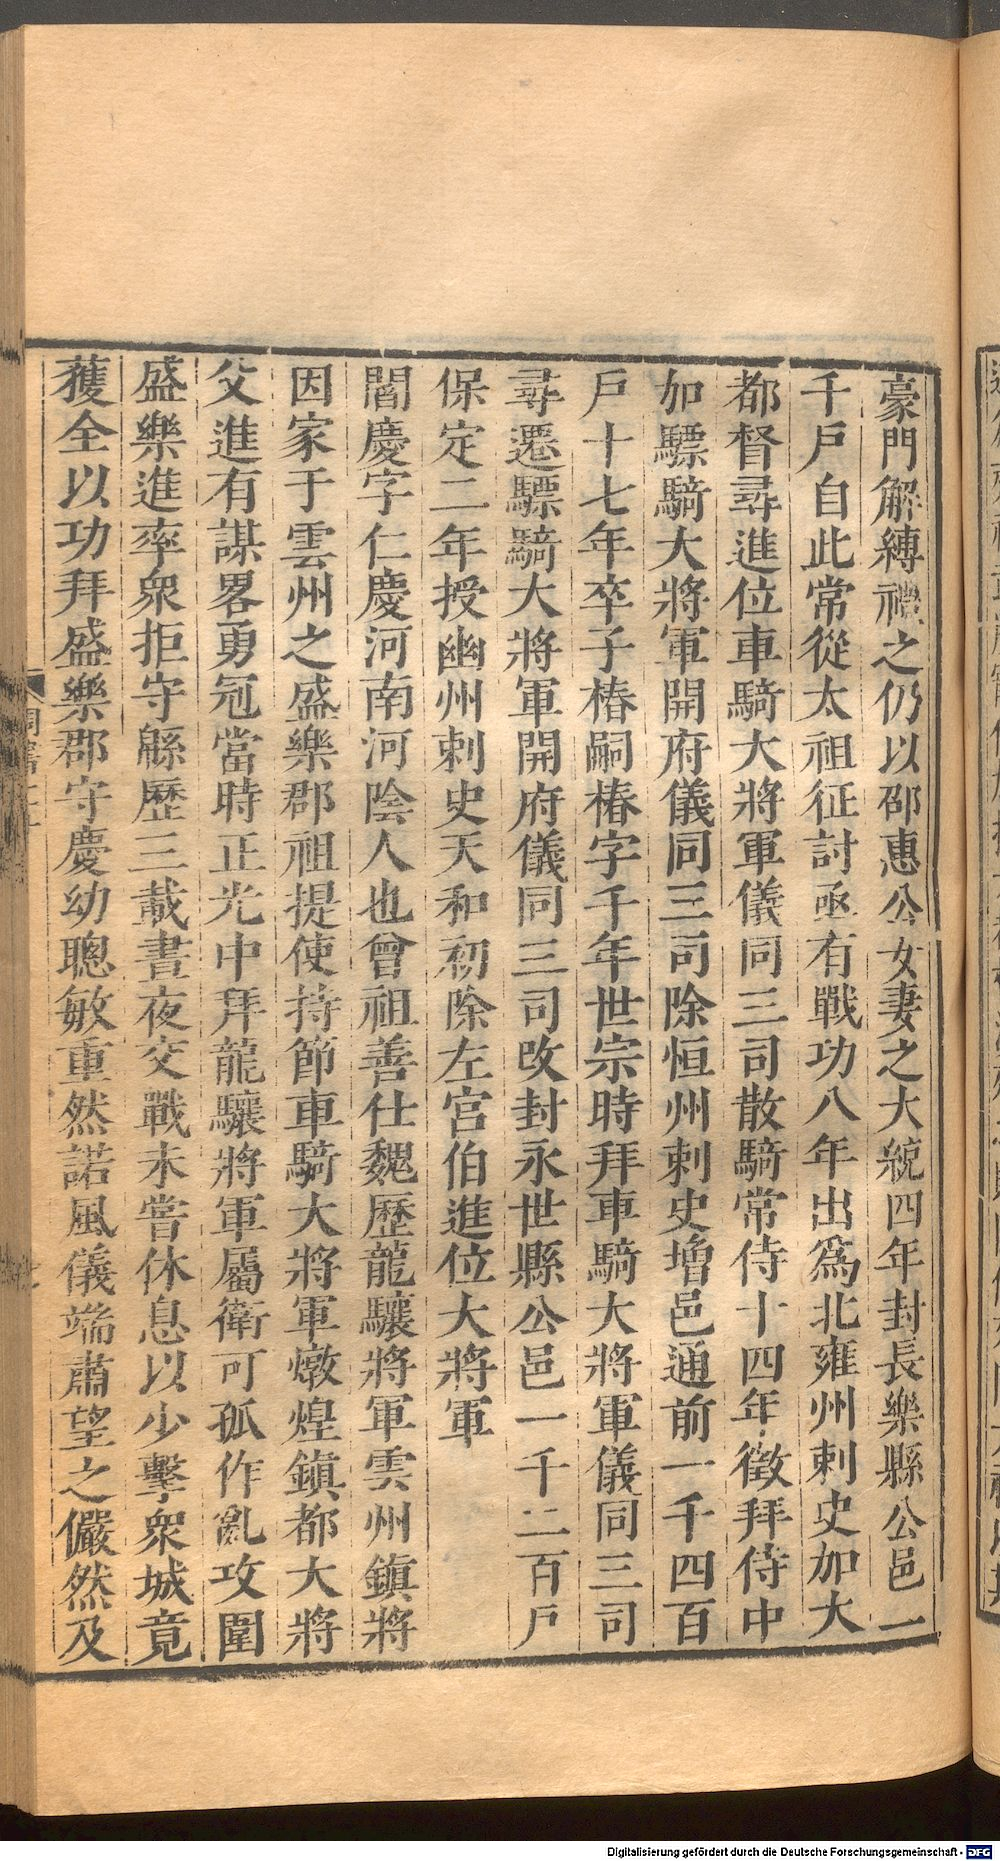 豪門解縛禮之仍以邵惠公女妻之大統四年封長樂縣公邑一
千戶自此常從太祖征討亟有戰功八年出爲北雍州刺史加大
都督尋進位車騎大將軍儀同三司散騎常侍十四年徵拜侍中
加驃騎大將軍開府儀同三司除恒州刺史增邑通前一千四百
戶十七年卒子椿嗣椿字千年世宗時拜車騎大將軍儀同三司
尋遷驃騎大將軍開府儀同三司改封永世縣公邑一千二百戶
保定二年授幽州刺史天和初除左宮伯進位大將軍
閻慶字仁慶河南河陰人也曾祖善仕魏歷龍驤將軍雲州鎮將
因家于雲州之盛樂郡祖提使持節車騎大將軍燉煌鎮都大將
父進有謀畧勇冠當時正光中拜龍驤將軍屬衛可孤作亂攻圍
盛樂進率衆拒守緜歷三載晝夜交戰未嘗休息以少擊衆城竟
獲全以功拜盛樂郡守慶幼聰敏重然諾風儀端肅望之儼然及
Digitalisierung gefördert durch die Deutsche Forschungsgemeinschaft - DFG